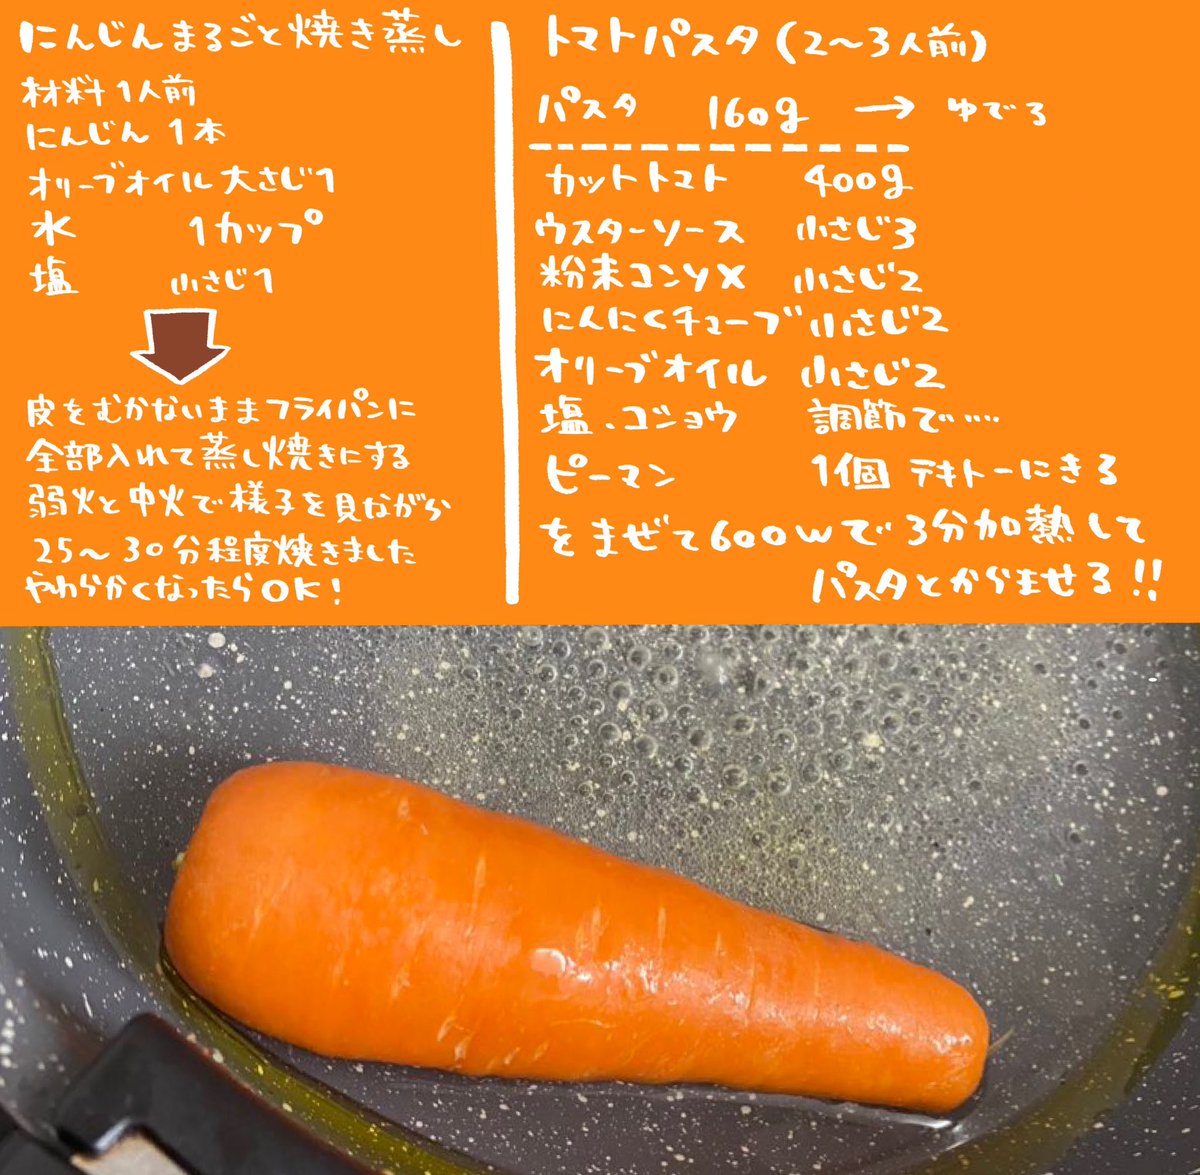 にんじんまるごと焼き蒸し
材料1人前
にんじん 1本
オリーブオイル大さじ1
水 1カップ
塩 小さじ1
皮をむかないままフライパンに
全部入れて蒸し焼きにする
弱火と中火で様子を見ながら
25〜30分程度焼きました
やわらかくなったらOK!
トマトパスタ(2〜3人前)
パスタ 160g → ゆでる
カットトマト 400g
ウスターソース 小さじ3
粉末コンソメ 小さじ2
にんにくチューブ 小さじ2
オリーブオイル 小さじ2
塩、コショウ 調節で……
ピーマン 1個 テキトーにきる
をまぜて600wで3分加熱して
パスタとからませる!!